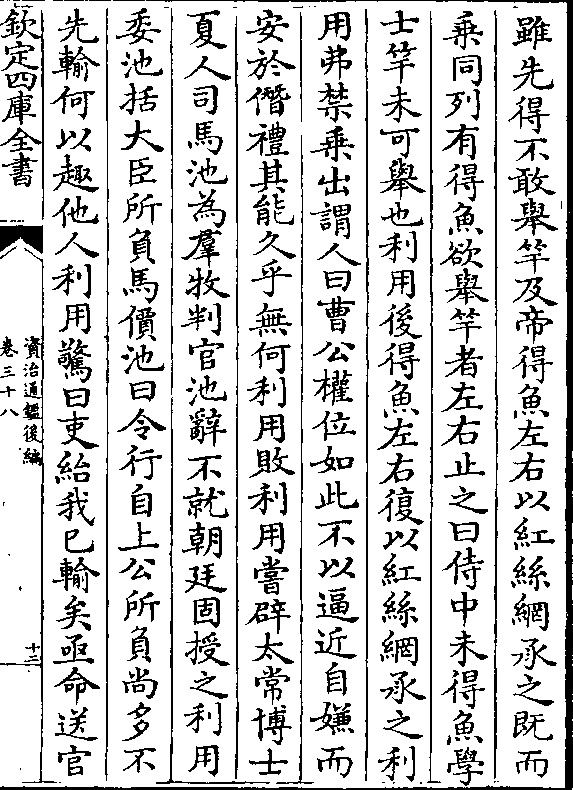 雖先得不敢舉竿及帝得魚左右以紅絲網承之既而
乘同列有得魚欲舉竿者左右止之曰侍中未得魚學
士竿未可舉也利用後得魚左右復以紅絲網承之利
用弗禁乘出謂人曰曹公權位如此不以逼近自嫌而
安於僭禮其能久乎無何利用敗利用嘗辟太常博士
夏人司馬池為羣牧判官池辭不就朝廷固授之利用
委池括大臣所負馬價池曰令行自上公所負尚多不
先輸何以趣他人利用驚曰吏紿我已輸矣亟命送官
欽定四庫全書
資治通鑑後編
卷三十八
十三